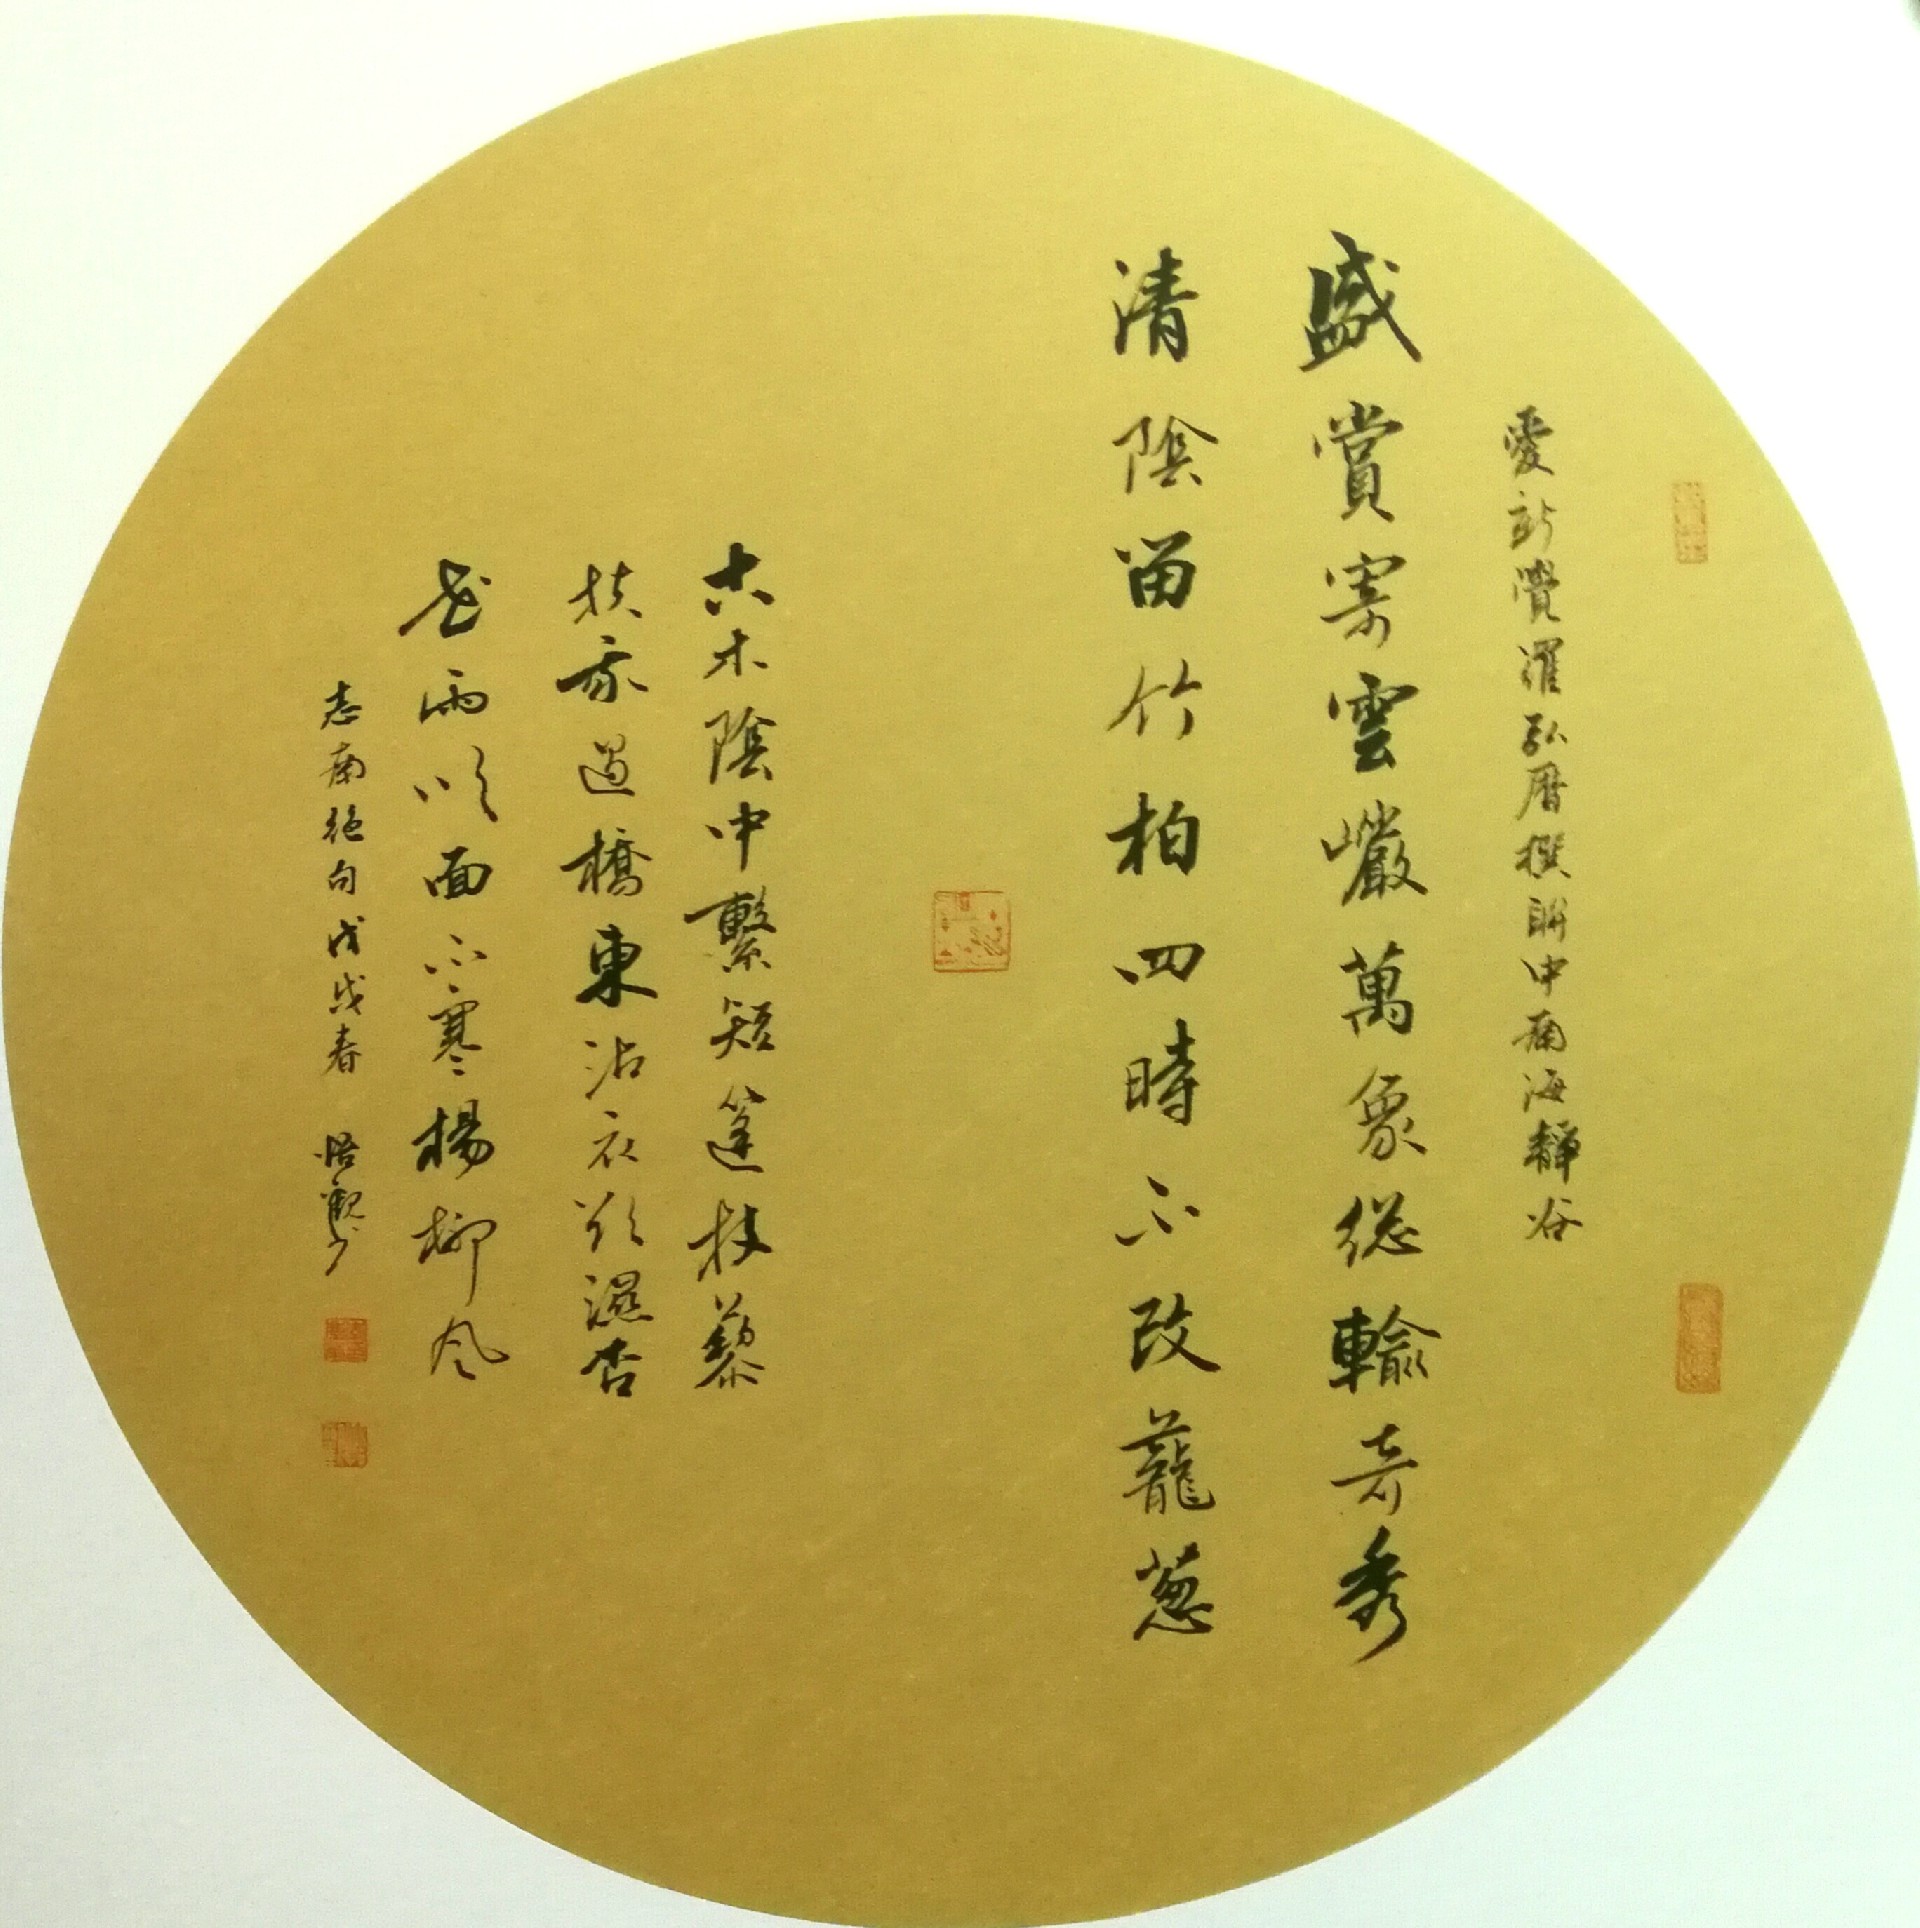 愛新覺羅弘曆撰聯中南海靜谷
盛賞寄雲巖萬象總輸奇秀
清陰留竹柏四時不改蘢蔥
古木陰中繫短篷杖藜
扶我過橋東沾衣欲濕杏
花雨吹面不寒楊柳風
志南絕句戊戌春 悟觀書